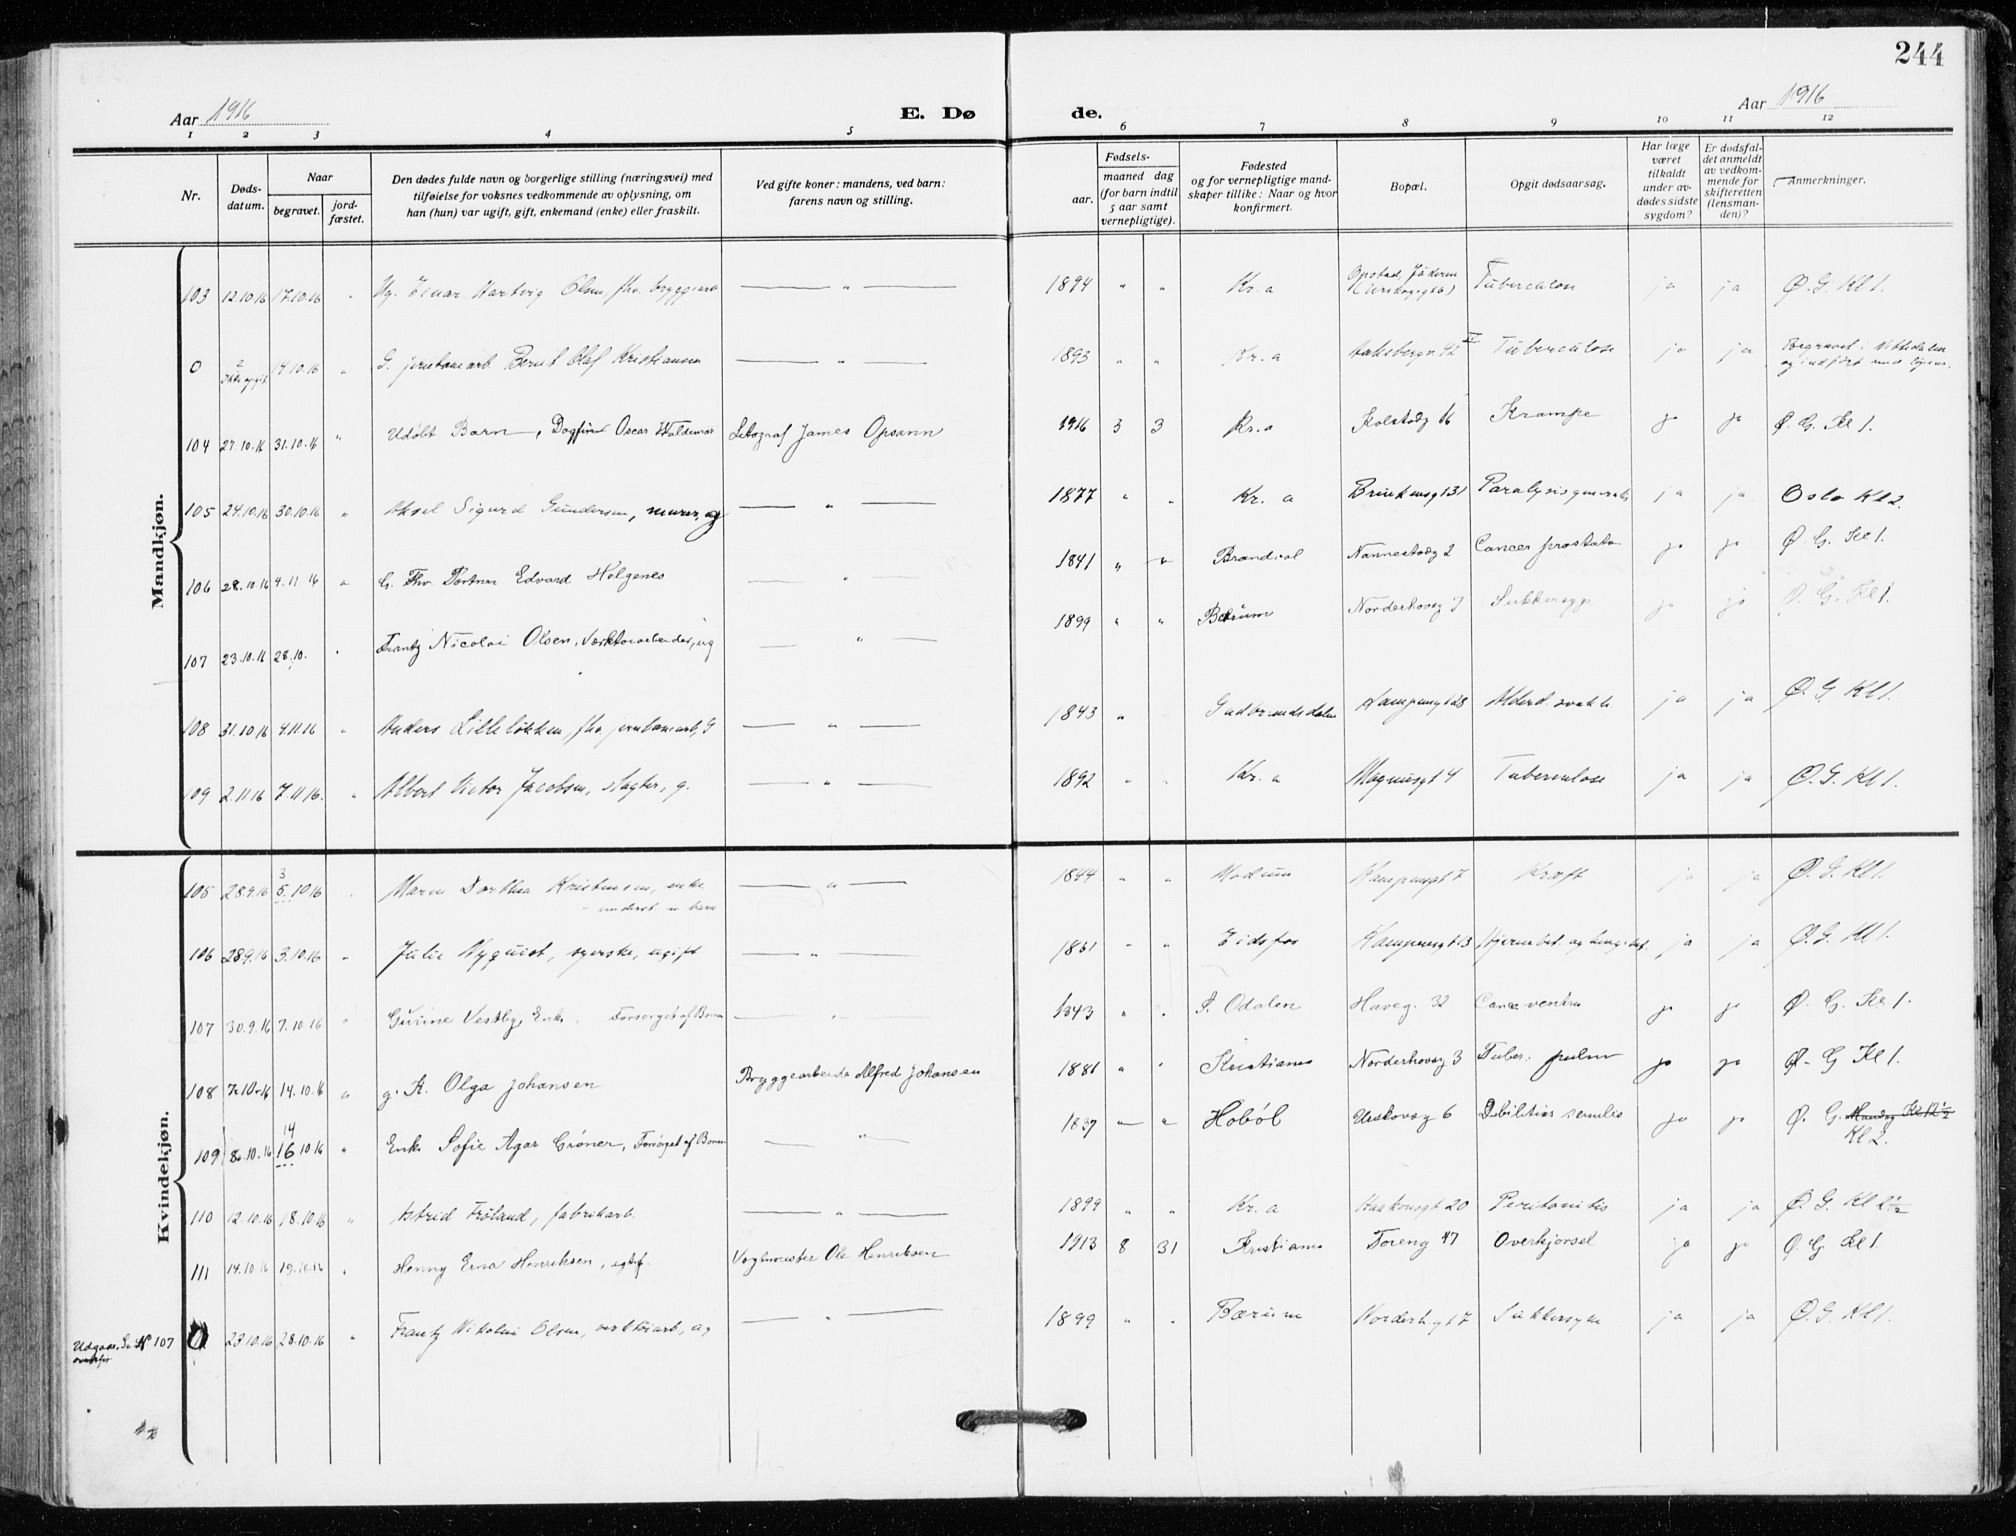 244
Aar 1916
E. Dø
de.
Aar 1916
1 2 3 4 5 6 7 8 9 10 11 12
Nr.
Døds-
datum.
Naar
begravet.
jord-
fæstet.
Den dødes fulde navn og borgerlige stilling (næringsvei) med
tilføielse for voksnes vedkommende av oplysning, om
han (hun) var ugift, gift, enkemand (enke) eller fraskilt.
Ved gifte koner: mandens, ved barn:
farens navn og stilling.
Fødsels-
aar.
maaned dag
(for barn indtil
5 aar samt
vernepligtige).
Fødested
og for vernepligtige mand-
skaper tillike: Naar og hvor
konfirmert.
Bopæl.
Opgit dødsaarsag.
Har læge
været
tilkaldt
under av-
dødes sidste
sygdom?
Er dødsfal-
det anmeldt
av vedkom-
mende for
skifteretten
(lensman-
den)?
Anmerkninger.
Mandkjøn.
103 12.10.16 17.10.16 " Ug. Einar Hartvig Olsen fhv. bryggearb — " — 1894 " " Kr.a Opstad, Jæderen Tuberculose ja ja Ø. G. Kl 1.
0 14.10.16 " G. jernbanearb Bernt Olaf Kristiansen — " — 1893 " " Kr. a 42 Tuberculose ja ja Begravet i Nittedalen
104 27.10.16 31.10.16 " Udöbt Barn, Dagfinn Oscar Waldemar Litograf James Opsann 1916 3 3 Kr.a 16 Krampe ja ja Ø. G. Kl 1.
105 24.10.16 30.10.16 " Aksel Sigurd Gundersen, murer, ug — " — 1877 " " Kr. a 131 Paralysis generalis ja ja Oslo Kl 2.
106 28.10.16 4.11 16 " G. Fhv. Portner Edvard Helgenes — " — 1841 " " Brandval Nannestadg 2 Cancer prostata ja ja Ø G. Kl 1.
107 23.10.16 28.10. " Frantz Nicolai Olsen, Værktøiarbeider, ug — " — 1899 " " Bærum Norderhovg 7 Sukkersyge ja ja Ø. G. Kl 1.
108 31.10 16 4.11 16 " Anders Lilleløkken, fhv. jernbanearb, G — " — 1843 " Gudbrandsdalen Kampengt 28 Alderd. svakh. ja ja Ø. G Kl 1.
109 2.11 16 7.11 16. " Albert Victor Jacobsen, slagter, g. — " — 1892 " " Kr. a Magnusgt 4 Tuberculose ja ja Ø. G. Kl 1.
Kvindekjøn.
3
105 28.9.16 5.10.16 Maren Dorthea Kristensen, enke — " — 1844 " " Modum Kampengt 7 Kræft ja ja Ø. G. Kl 1.
- underst. av barn
106 28.9.16 3.10.16 " Julie Nyquist, syerske, ugift — " — 1861 " " Eidsfos Kampengt 13 Hjernebet. og lungebet. ja ja Ø. G. Kl 1.
107 30.9.16 7.10.16 " Gurine Vestby, Enke. Forsørget af Børn — " — 1843 " " S. Odalen Haveg. 32 Cancer ventric ja ja Ø. G. Kl 1.
108 7.10.16 14.10.16 " g. K. Olga Johansen Bryggearbeider Alfred Johansen 1881 " " Kristiania Norderhovsg 3 Tuber. pulm ja ja Ø. G Kl 1.
14
109 8.10.16 16 10.16 " Enke Sofie Agar Grøner, Forsørget af Børn — " — 1837 " " Hobøl Urskovsg 6 Debilitas senilis ja ja Ø. G. Mandag Kl 12 1/2
Kl 2.
110 12.10.16 18.10.16 " Astrid Frøland, fabrikarb. — " — 1899 " " Kr. a Haakonsgt 20 Peritonitis ja ja Ø. G. Kl 1 1/2
111 14.10.16 19.10.16 " Henny Erna Henriksen, egtef. Vognmester Ole Henriksen 1913 8 31 Kristiania Toreng 47 Overkjørsel ja ja Ø. G Kl 1.
Udgaar. Se № 107
ovenfor
0 23.10.16 28.10.16 " Frantz Nikolai Olsen, verktøiarb, ug — " — 1899 " " Bærum Norderh.gt 7 Sukkersyke ja ja Ø. G. Kl 1.